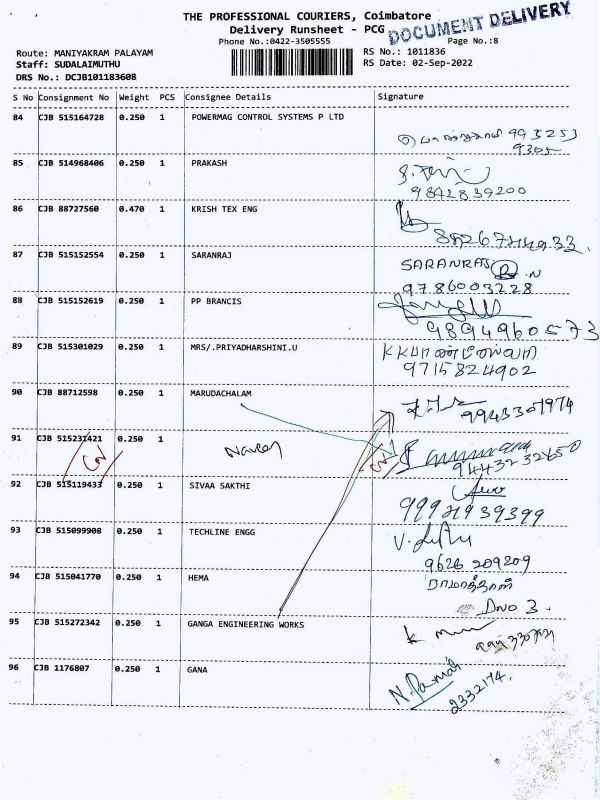 THE PROFESSIONAL COURIERS, Coimbatore
Delivery Runsheet - PCG
DOCUMENT DELIVERY
Phone No.:0422-3505555
Page No.:8
Route: MANIYAKRAM PALAYAM
RS No.: 1011836
Staff: SUDALAIMUTHU
RS Date: 02-Sep-2022
DRS No.: DCJB101183608
S No Consignment No Weight PCS Consignee Details Signature
84 CJB 515164728 0.250 1 POWERMAG CONTROL SYSTEMS P LTD
85 CJB 514968406 0.250 1 PRAKASH
9842839200
86 CJB 88727560 0.470 1 KRISH TEX ENG
87 CJB 515152554 0.250 1 SARANRAJ SARANRAJ
9786003228
88 CJB 515152619 0.250 1 PP BRANCIS
9894960573
89 CJB 515301029 0.250 1 MRS/.PRIYADHARSHINI.U
9715824902
90 CJB 88712598 0.250 1 MARUDACHALAM
9943301974
91 CJB 515231421 0.250 1
92 CJB 515119433 0.250 1 SIVAA SAKTHI
93 CJB 515099908 0.250 1 TECHLINE ENGG
9626 209209
94 CJB 515041770 0.250 1 HEMA
DNO 3.
95 CJB 515272342 0.250 1 GANGA ENGINEERING WORKS
96 CJB 1176807 0.250 1 GANA
2332174.